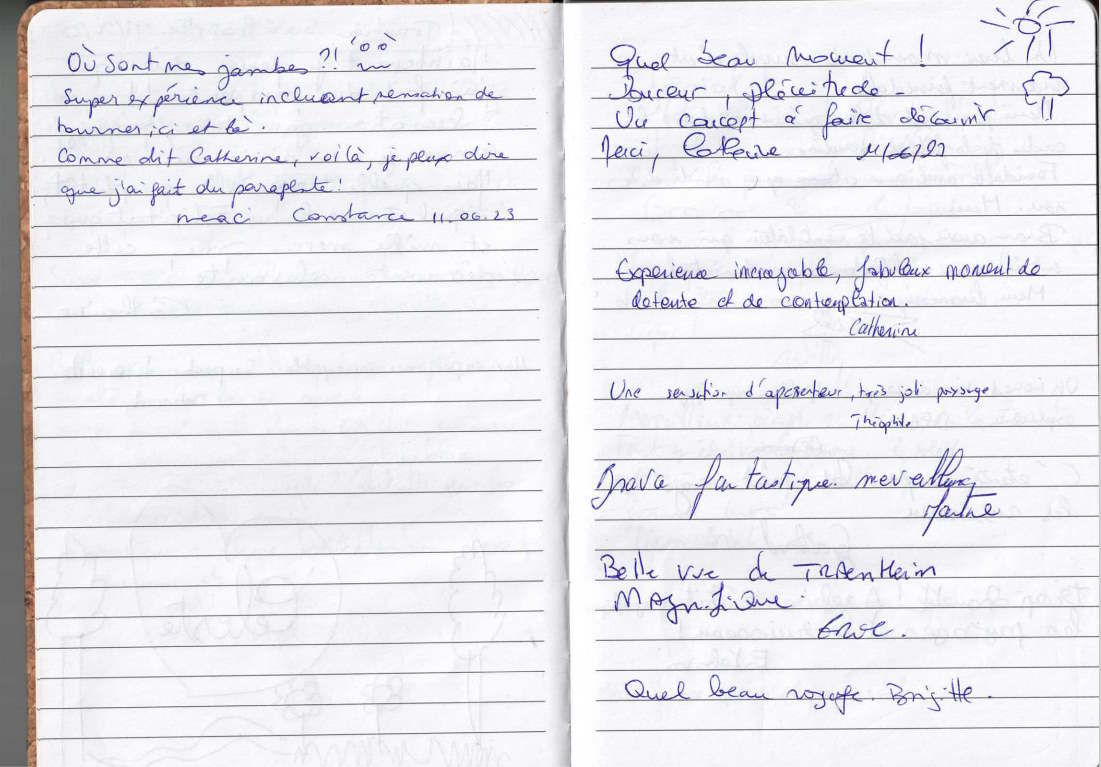 Où sont mes jambes ?!
Super expérience incluant sensation de
tourner ici et là.
Comme dit Catherine, voilà, je peux dire
que j'ai fait du parapente !
merci Constance 11.06.23
Quel beau moment !
Douceur, plénitude -
Un concept à faire découvrir
Merci, 11/06/23
Experience incroyable, fabuleux moment de
detente et de contemplation.
Catherine
Une sensation d'apesenteur, très joli paysage
Théophile
Bravo fantastique merveilleux
Belle vue de Traenheim
Magnifique.
Quel beau voyage. Brigitte.